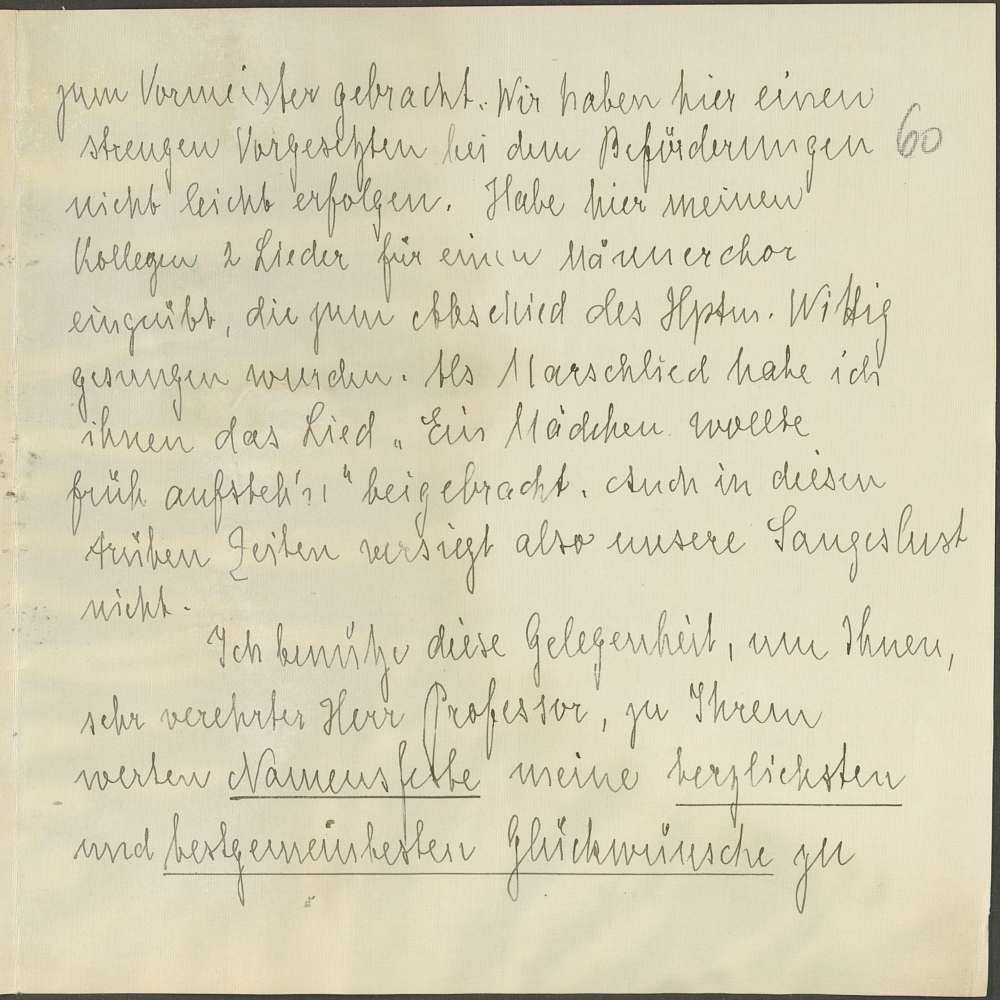 zum Vormeister gebracht. Wir haben hier einen
strengen Vorgesetzten bei dem Beförderungen 60
nicht leicht erfolgen. Habe hier meinen
Kollegen 2 Lieder für einen Männerchor
eingeübt, die zum Abschied des Hptm. Wittig
gesungen wurden. Als Marschlied habe ich
ihnen das Lied „Ein Mädchen wollte
früh aufsteh'n" beigebracht. Auch in diesen
trüben Zeiten versiegt also unsere Sangeslust
nicht.
Ich benütze diese Gelegenheit, um Ihnen,
sehr verehrter Herr Professor, zu Ihrem
werten Namensfeste meine herzlichsten
und bestgemeintesten Glückwünsche zu